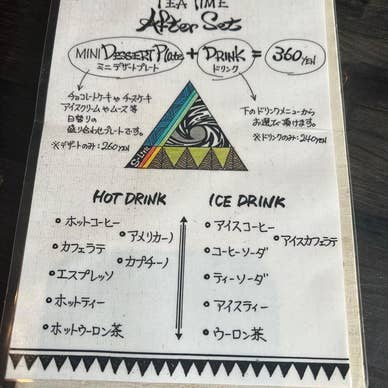 TEA TIME
After Set
MINI DESSERT Plate + DRINK = 360 YEN
ミニデザートプレート ドリンク
チョコレートケーキやチーズケーキ
アイスクリームやムース等
日替りの
盛り合わせプレートです。
※デザートのみ:260YEN
下のドリンクメニューから
お選びで頂けます。
※ドリンクのみ:240YEN
HOT DRINK
ホットコーヒー
アメリカーノ
カフェラテ
カプチーノ
エスプレッソ
ホットティー
ホットウーロン茶
ICE DRINK
アイスコーヒー
アイスカフェラテ
コーヒーソーダ
ティーソーダ
アイスティー
ウーロン茶